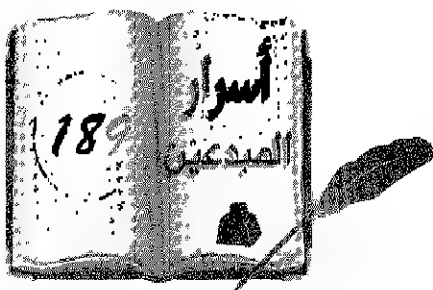 189
أسرار
المبدعين